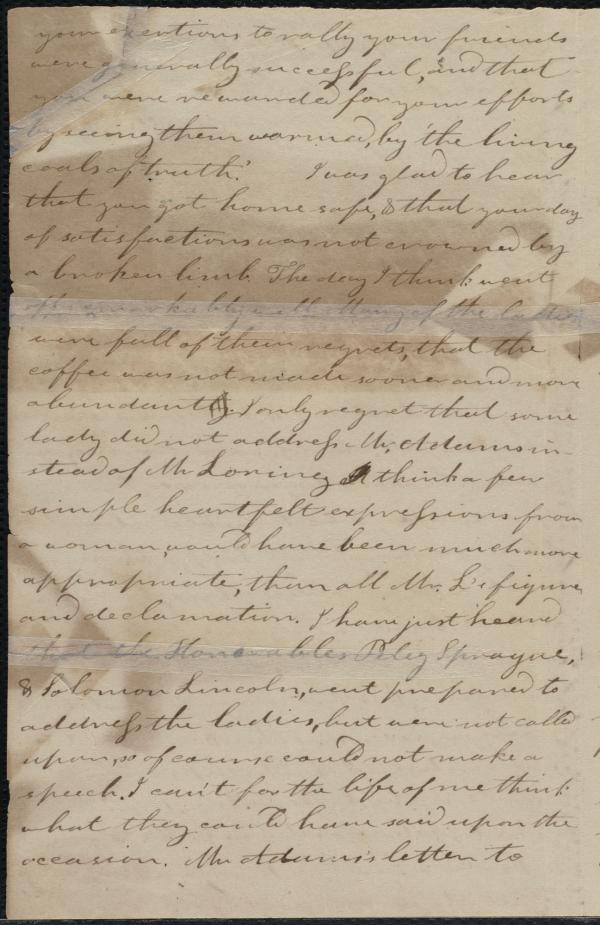 your exertions to rally your friends
were generally successful, and that
you were rewarded for your efforts
by seeing them warmed, by "the living
coals of truth." I was glad to hear
that you got home safe, & that your day
of satisfactions was not crowned by
a broken limb. The day I think went
off remarkably well. Many of the ladies
were full of them regrets, that the
coffee was not made sooner and more
abundantly. I only regret that some
lady did not address Mr. Adams in-
stead of Mr Loring. I think a few
simple heartfelt expressions from
a woman, would have been much more
appropriate, than all Mr. L's figures
and declamation. I have just heard
that the Honorables Peleg Sprague,
& Solomon Lincoln, went prepared to
address the ladies, but were not called
upon, so of course could not make a
speech. I can't for the life of me think
what they could have said upon the
occasion. Mr Adams's letter to